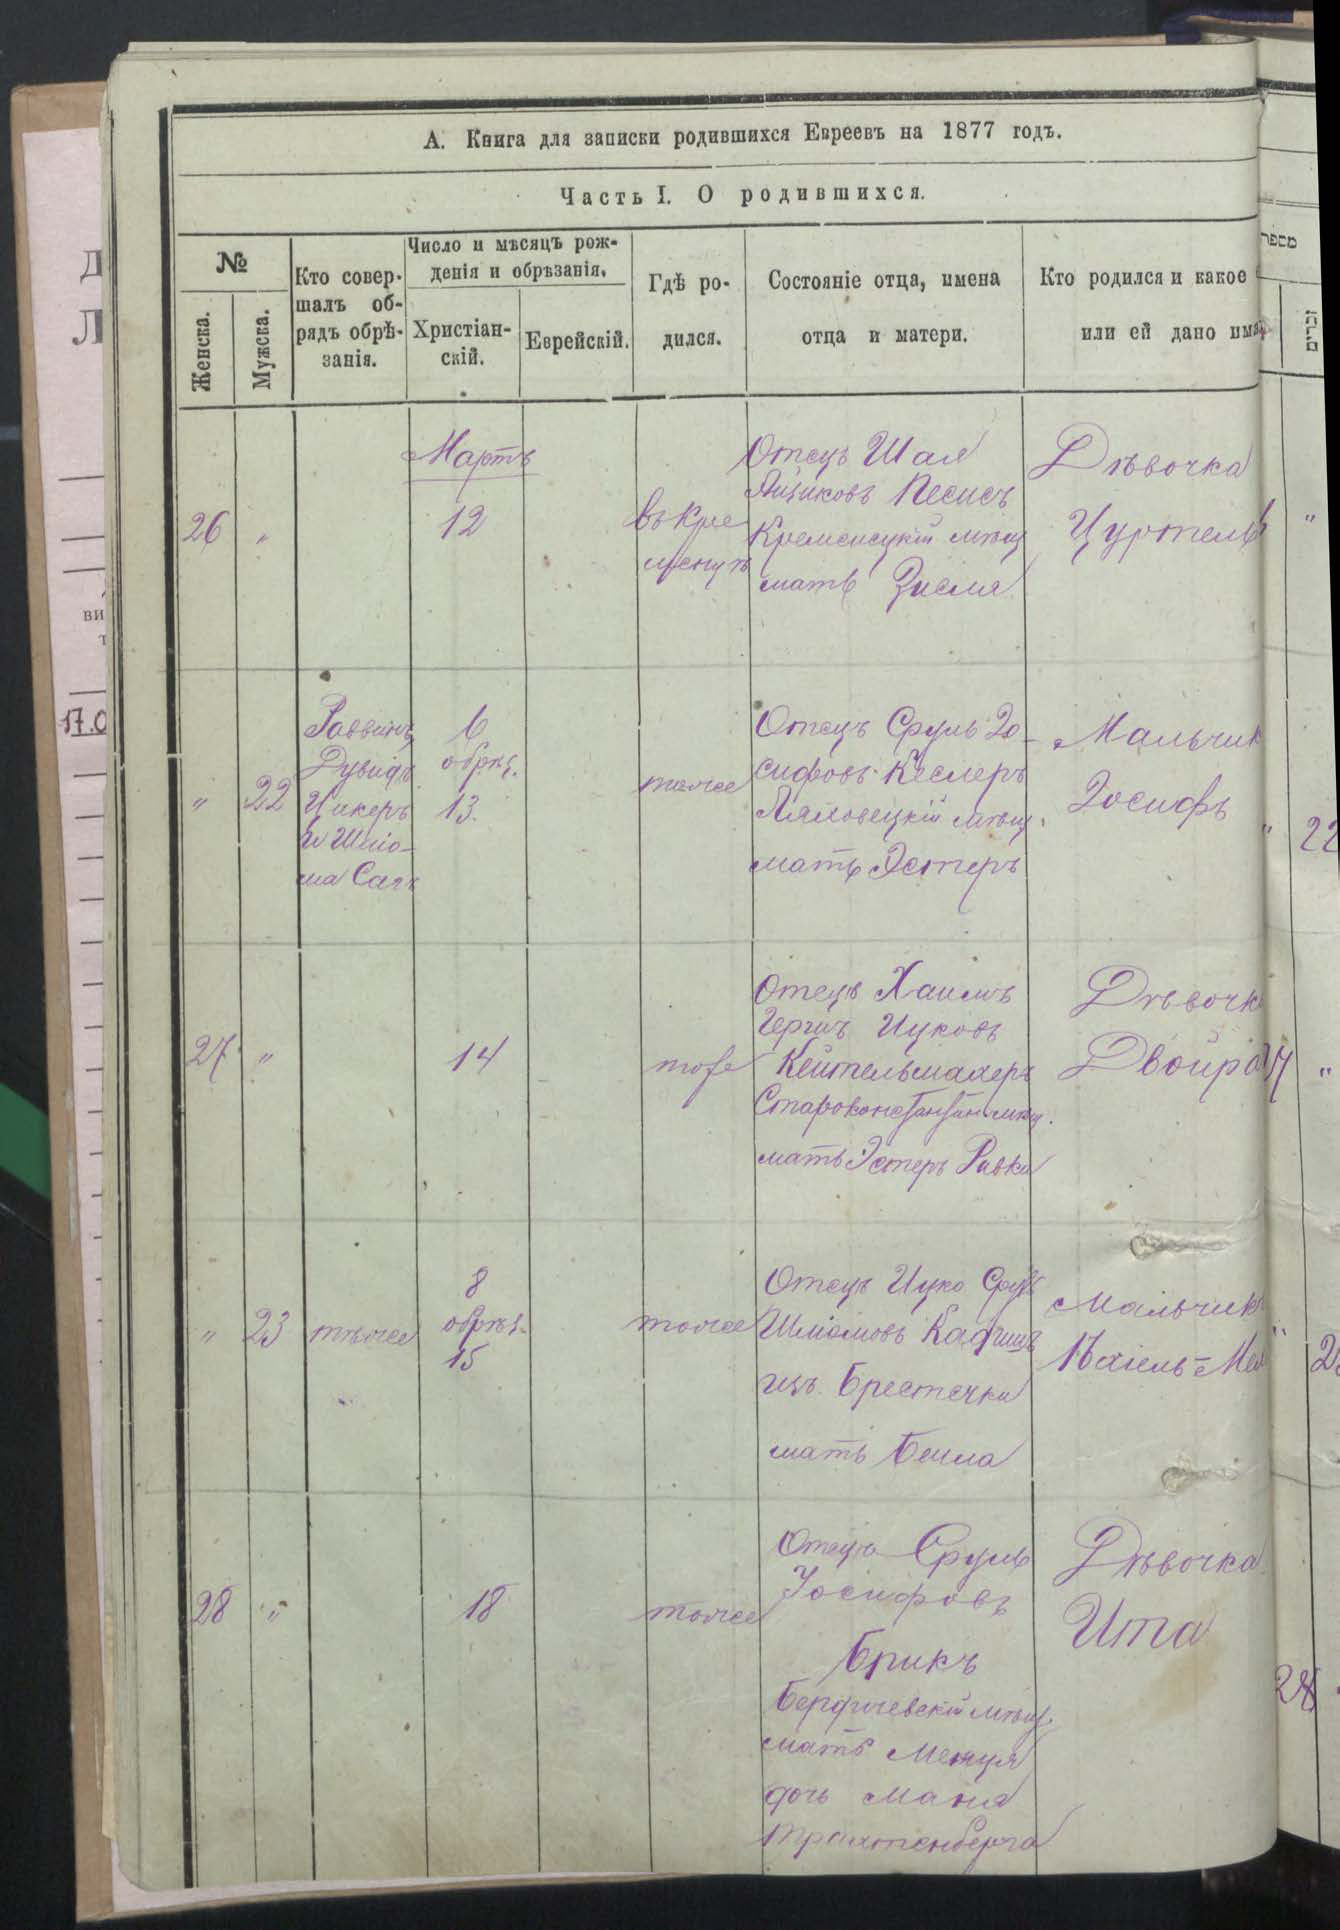 А. Книга для записки родившихся Евреевъ на 1877 годъ.
Часть I. О родившихся.
№
Женска.
Мужска.
Кто совер-
шалъ об-
рядъ обрѣ-
занія.
Число и мѣсяцъ рож-
денія и обрѣзанія.
Христіан-
скій.
Еврейскій.
Гдѣ ро-
дился.
Состояніе отца, имена
отца и матери.
Кто родился и какое
или ей дано имя
מספר
זכרים
Мартъ
26 "
12
въ Кре
менцѣ
Отецъ Шая
Ициковъ Песисъ
Кременецкій мѣщ
мать Зисля
Дѣвочка
Цуртель
"
" 22
Раввинъ
Дувидъ
Цикеръ
и Шліо-
ма
6
обрѣз.
13.
тоже
Отецъ Сруль Іо-
сифовъ Кеслеръ
Ляховецкій мѣщ.
мать Эстеръ
Мальчик
Іосифъ
" 22
27 "
14
тоже
Отецъ Хаимъ
Гершъ Ицковъ
Кейтельмахеръ
Староконстантин мѣщ.
мать Эстеръ Ривка
Дѣвочк
Двойра
"
" 23
тѣже
8
обрѣз.
15
тоже
Отецъ Ицко Сруль
Шліомовъ
изъ Берестечка
мать Бейла
Мальчикъ
"
28 "
18
тоже
Отецъ Сруль
Іосифовъ
Брикъ
Бердичевскій мѣщ.
мать Менця
дочь Маня
Трахтенберга
Дѣвочка
Ита
28
17.0